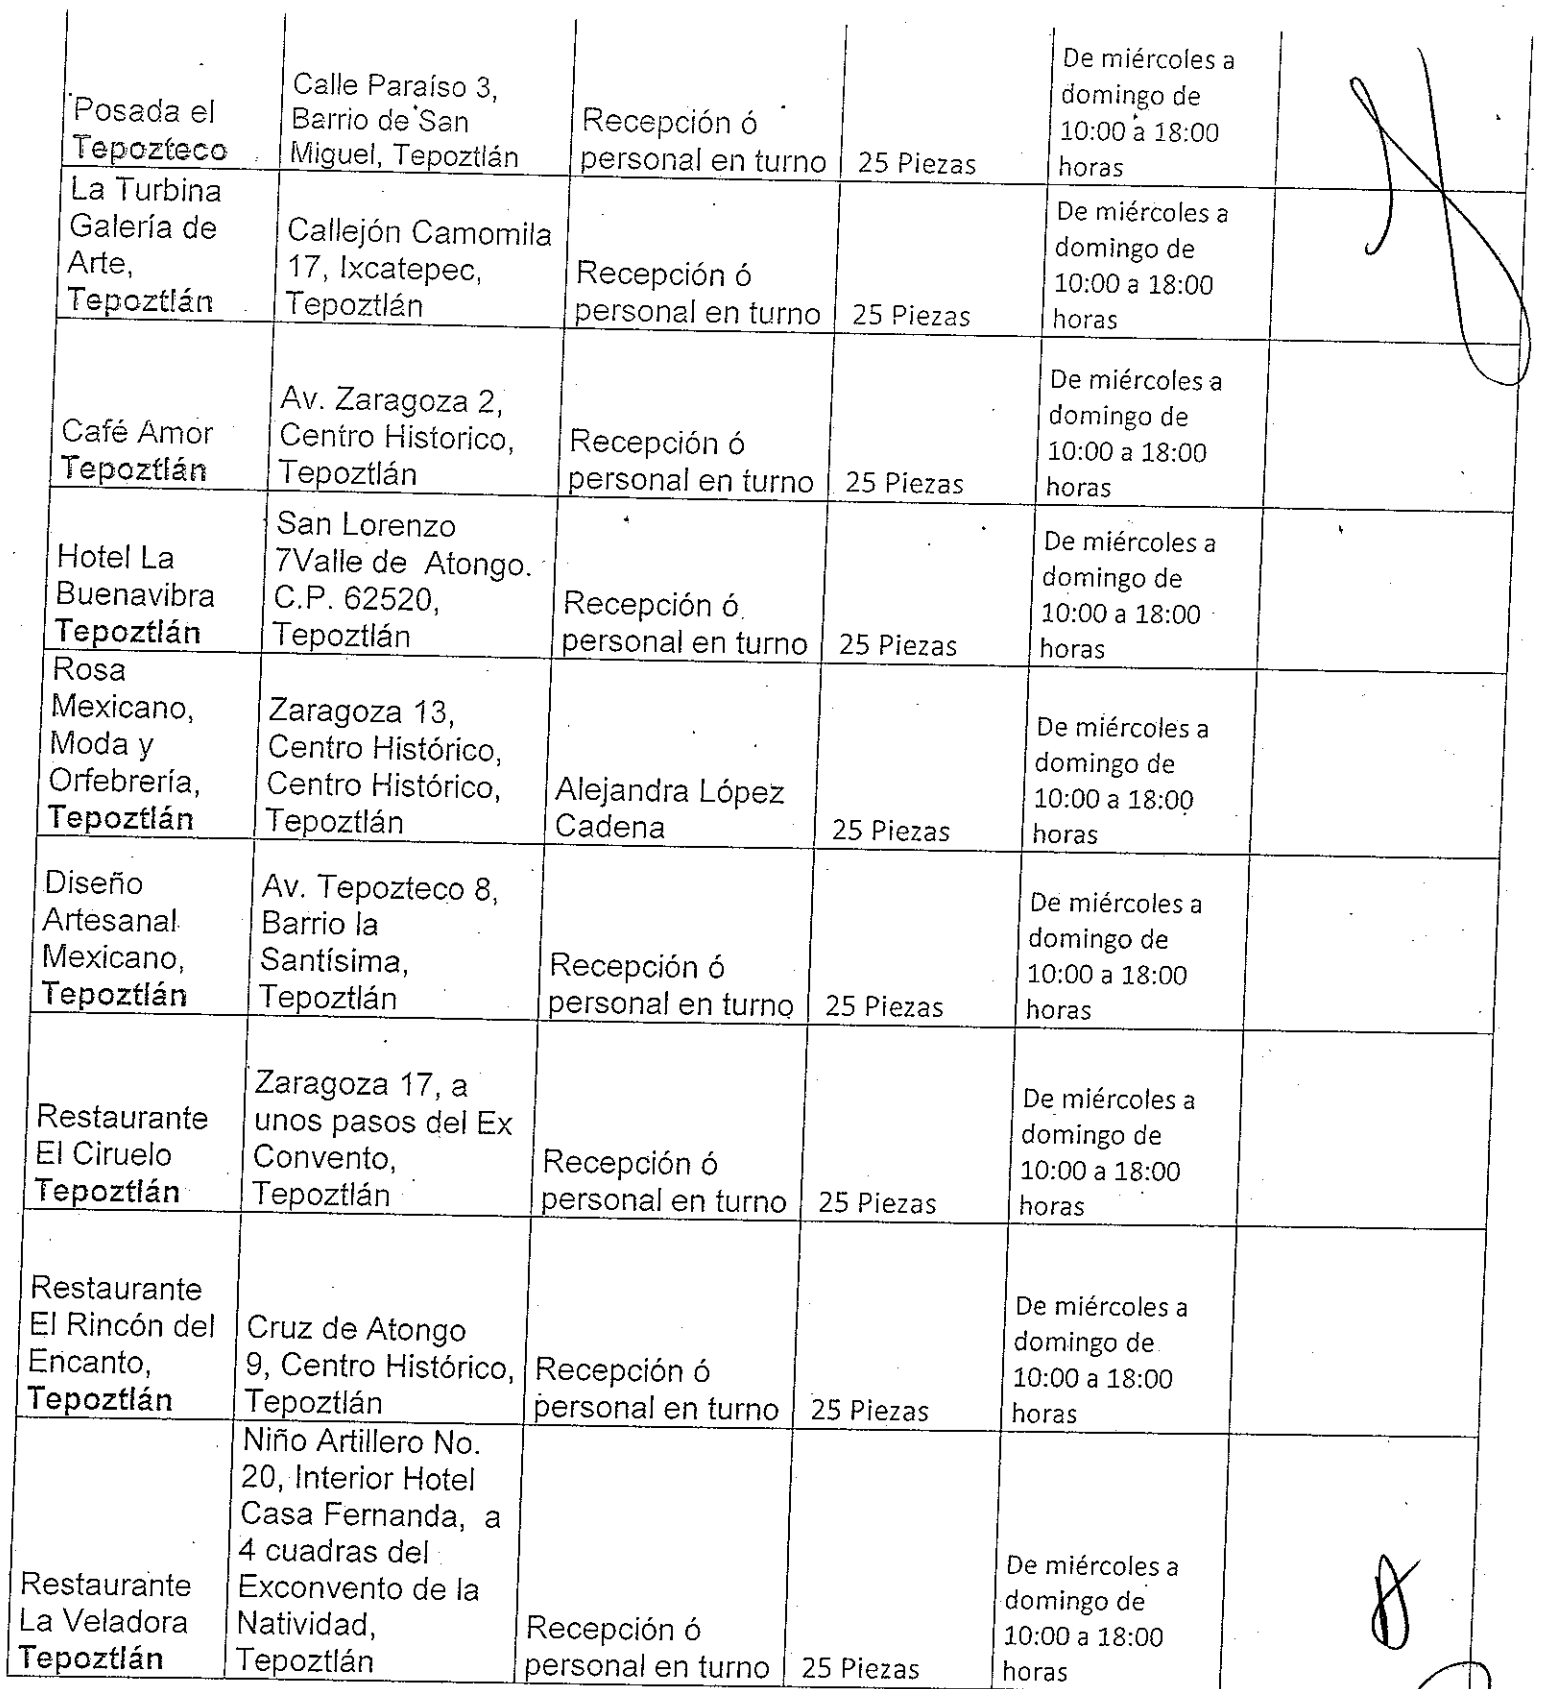 Posada el
Tepozteco
Calle Paraíso 3,
Barrio de San
Miguel, Tepoztlán
Recepción ó
personal en turno
25 Piezas
De miércoles a
domingo de
10:00 a 18:00
horas
La Turbina
Galería de
Arte,
Tepoztlán
Callejón Camomila
17, Ixcatepec,
Tepoztlán
Recepción ó
personal en turno
25 Piezas
De miércoles a
domingo de
10:00 a 18:00
horas
Café Amor
Tepoztlán
Av. Zaragoza 2,
Centro Historico,
Tepoztlán
Recepción ó
personal en turno
25 Piezas
De miércoles a
domingo de
10:00 a 18:00
horas
Hotel La
Buenavibra
Tepoztlán
San Lorenzo
7Valle de Atongo.
C.P. 62520,
Tepoztlán
Recepción ó
personal en turno
25 Piezas
De miércoles a
domingo de
10:00 a 18:00
horas
Rosa
Mexicano,
Moda y
Orfebrería,
Tepoztlán
Zaragoza 13,
Centro Histórico,
Centro Histórico,
Tepoztlán
Alejandra López
Cadena
25 Piezas
De miércoles a
domingo de
10:00 a 18:00
horas
Diseño
Artesanal
Mexicano,
Tepoztlán
Av. Tepozteco 8,
Barrio la
Santísima,
Tepoztlán
Recepción ó
personal en turno
25 Piezas
De miércoles a
domingo de
10:00 a 18:00
horas
Restaurante
El Ciruelo
Tepoztlán
Zaragoza 17, a
unos pasos del Ex
Convento,
Tepoztlán
Recepción ó
personal en turno
25 Piezas
De miércoles a
domingo de
10:00 a 18:00
horas
Restaurante
El Rincón del
Encanto,
Tepoztlán
Cruz de Atongo
9, Centro Histórico,
Tepoztlán
Recepción ó
personal en turno
25 Piezas
De miércoles a
domingo de
10:00 a 18:00
horas
Restaurante
La Veladora
Tepoztlán
Niño Artillero No.
20, Interior Hotel
Casa Fernanda, a
4 cuadras del
Exconvento de la
Natividad,
Tepoztlán
Recepción ó
personal en turno
25 Piezas
De miércoles a
domingo de
10:00 a 18:00
horas